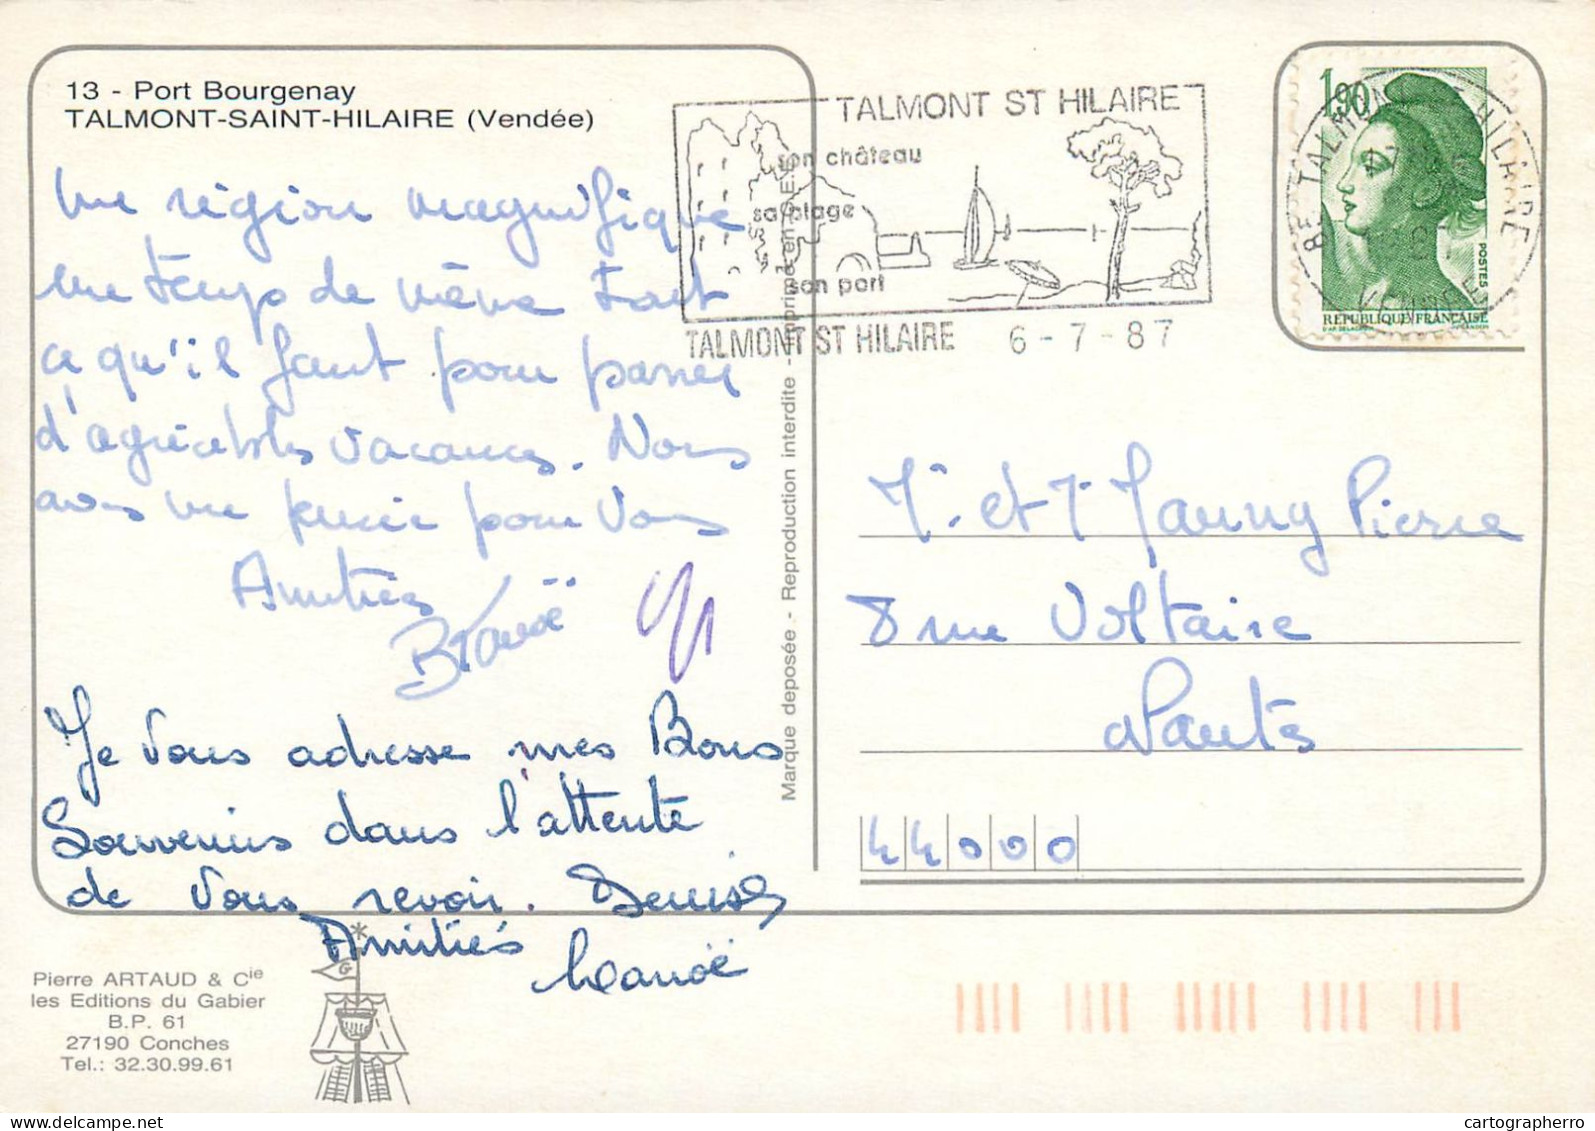 13 - Port Bourgenay
TALMONT-SAINT-HILAIRE (Vendée)
Une région magnifique
une temps de même tout
ce qu'il faut pour passer
d'agréables vacances. Nous
avons une pensée pour vous
Amitiés
Je vous adresse mes Bons
Souvenirs dans l'attente
de vous revoir. Denise
Amitiés
Pierre ARTAUD & Cie
les Editions du Gabier
B.P. 61
27190 Conches
Tel.: 32.30.99.61
G
Marque deposée - Reproduction interdite - Imprimé en C.E.E.
TALMONT ST HILAIRE
son château
sa plage
son port
TALMONT ST HILAIRE 6 - 7 - 87
1,90
POSTES
REPUBLIQUE FRANÇAISE
85 TALMONT ST HILAIRE
VENDEE
et Pierre
8 rue Voltaire
Nantes
44000
cartographerro